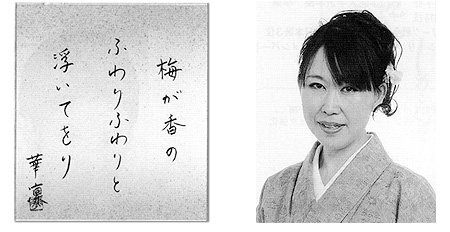 梅が香の
ふわりふわりと
浮いてをり
華凜